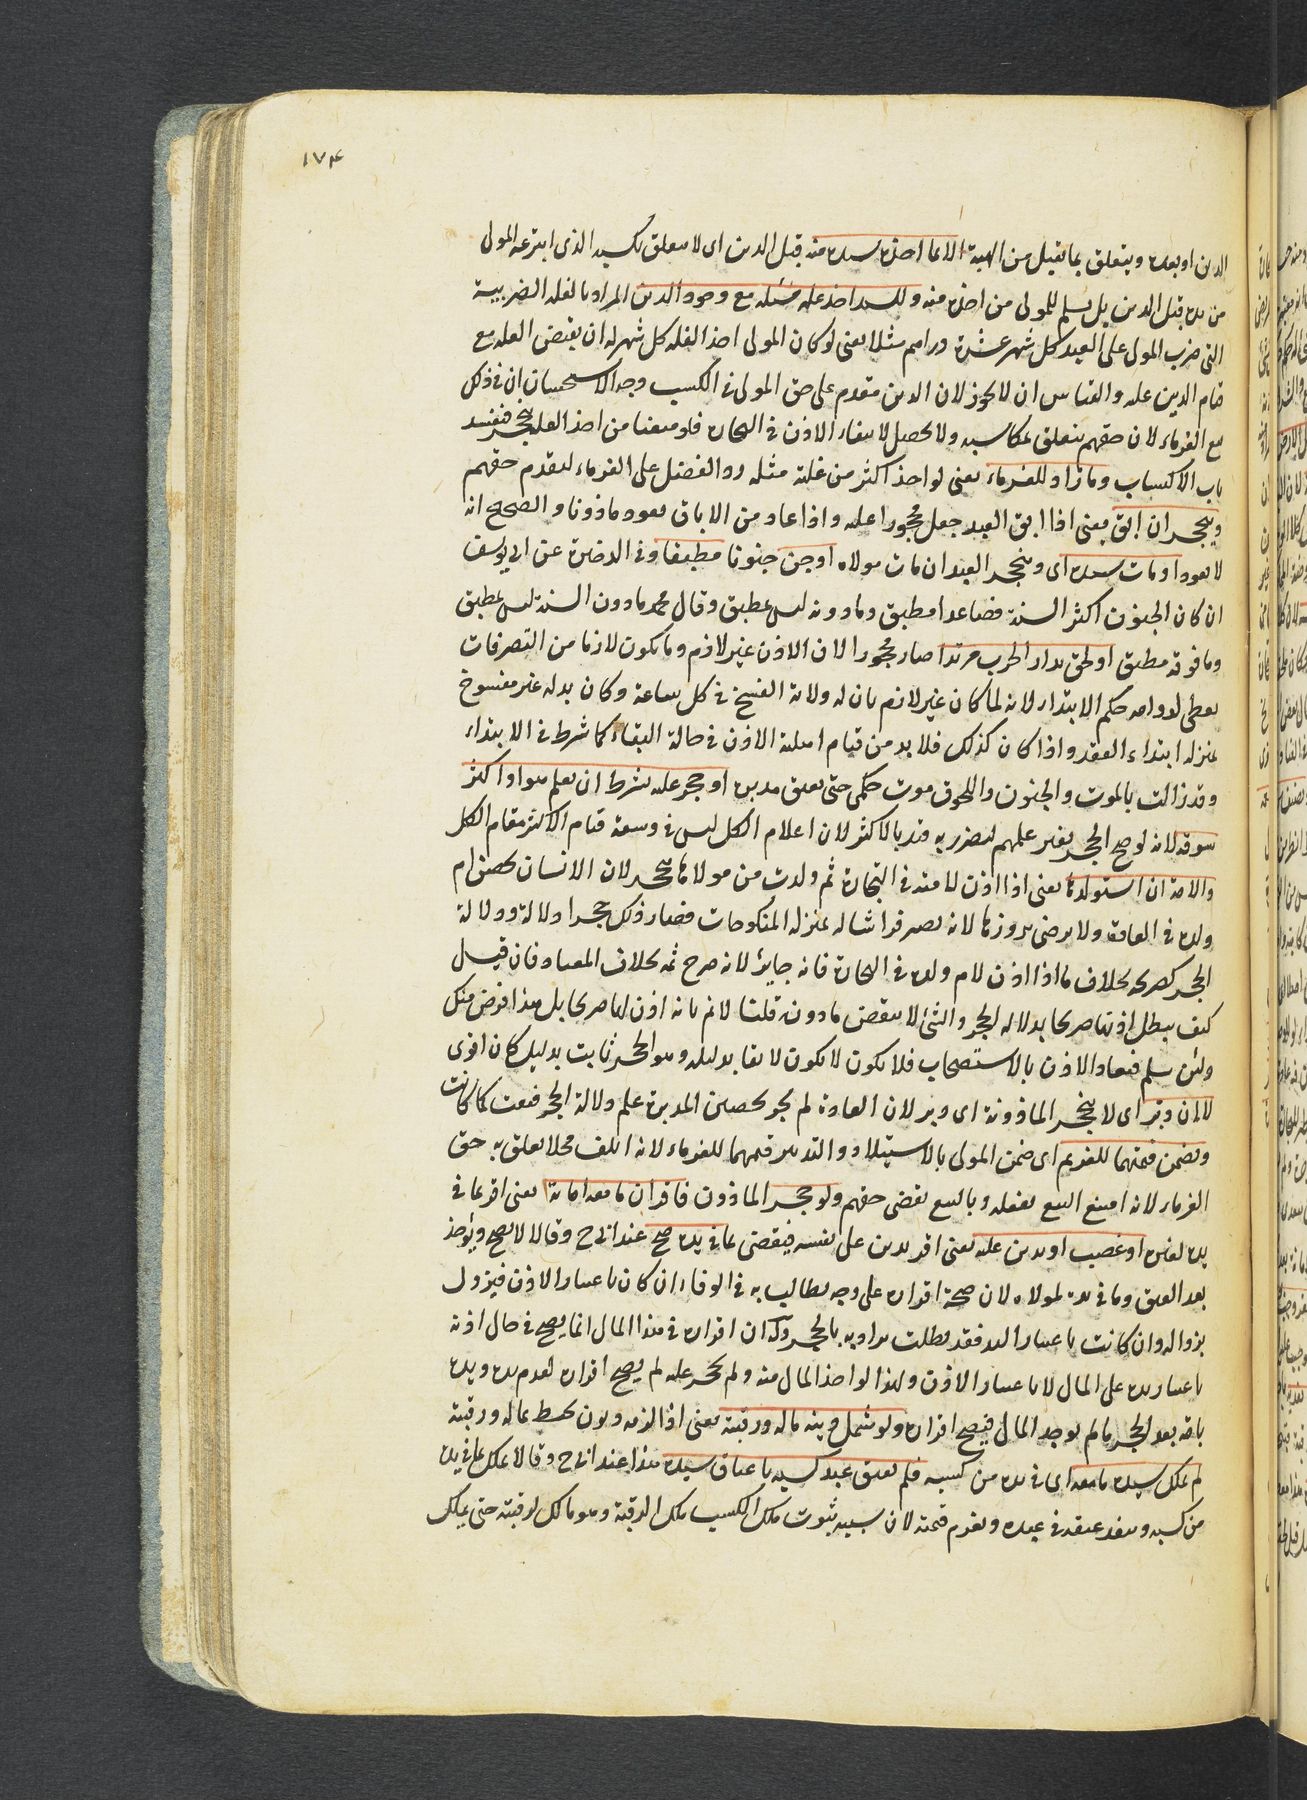 ١٧٤
الدين او بعده ويتعلق بما تقبل من الهبة الا بما اخذه سيده منه قبل الدين اى لا يتعلق بكسبه الذى انتزعه المولى
من يده قبل الدين بل يسلم للمولى من اخذه منه وللسيد اخذ غلة مثله مع وجود الدين المراد بالغلة الضريبة
التى ضرب المولى على العبد كل شهر عشرة دراهم مثلا يعنى لو كان المولى اخذ الغلة كل شهر له ان يقبض الغلة مع
قيام الدين عليه والقياس ان لا يجوز لان الدين مقدم على حق المولى فى الكسب وجه الاستحسان ان فى ذلك
نفع الغرماء لان حقهم يتعلق بمكاسبه ولا يحصل الا ببقاء الاذن فى التجارة فلو منعنا من اخذ الغلة يحجر فينسد
باب الاكتساب وما زاد للغرماء يعنى لو اخذ اكثر من غلة مثله رد الفضل على الغرماء لتقدم حقهم
وينحجر ان ابق يعنى اذا ابق العبد جعل محجورا عليه واذا عاد من الاباق يعود ماذونا والصحيح انه
لا يعود او مات سيده اى وينحجر العبد ان مات مولاه او جن جنونا مطبقا وفى الذخيرة عن ابى يوسف
ان كان الجنون اكثر السنة فصاعدا مطبق وما دونه ليس بمطبق وقال محمد ما دون السنة ليس بمطبق
وما فوقه مطبق او لحق بدار الحرب مرتدا صار محجورا لان الاذن غير لازم وما يكون لازما من التصرفات
يعطى لدوامه حكم الابتداء لانه لما كان غير لازم بان له ولاية الفسخ فى كل ساعة وكان بدله غير مفسوخ
بمنزلة ابتداء العقد واذا كان كذلك فلا بد من قيام اهلية الاذن فى حالة البقاء كما شرط فى الابتداء
وقد زالت بالموت والجنون واللحوق موت حكمى حتى يعتق مدبره او حجر عليه بشرط ان يعلم هو او اكثر
سوقه لانه لو صح الحجر بغير علمهم لتضرر به قيد بالاكثر لان اعلام الكل ليس فى وسعه فيام الاكثر مقام الكل
والامة ان استولدها يعنى اذا اذن لامته فى التجارة ثم ولدت من مولاها تنحجر لان الانسان يحصن ام
ولده فى العادة ولا يرضى بروزها لانه يصير فراشا له بمنزلة المنكوحات فصار ذلك حجرا دلالة ودلالة
الحجر كصريحه بخلاف ما اذا اذن لام ولده فى التجارة فانه جايز لانه صرح ثمه بخلاف المعتاد فان قيل
كيف يبطل اذنها صريحا بدلالة الحجر والشئ لا ينقض ما دونه قلنا لا نم بانه اذن لها صريحا بل هذا فرض منك
ولئن سلم فبقاء الاذن بالاستصحاب فلا يكون لا يكون لا بقا بدليله وهو الحجر ثابت بدليل كان اقوى
لا ان دبر اى لا ينحجر الماذونة اى دبر لان العادة لم يجر بتحصين المدبرة علم دلالة الحجر فبقيت كما كانت
ويضمن قيمتهما للغريم اى ضمن المولى بالاستيلاد والتدبير قيمتهما للغرماء لانه اتلف محلا تعلق به حق
الغرماء لانه امتنع البيع بفعله وبالبيع يقضى حقهم ولو حجر الماذون فاقر ان ما معه امانة يعنى اقر بما فى
يده لغيره او غصب او بدين عليه يعنى اقر بدين على نفسه فيقضى بما فى يده صح عند ابى ح وقالا لا يصح ويؤخذ
بعد العتق وما فى يده لمولاه لان صحة اقراره على وجه يطالب به فى الوفاء ان كان باعتبار الاذن فيزول
بزواله وان كانت باعتبار اليد فقد بطلت يداويه بالحجر وله ان اقراره فى هذا المال انما يصح فى حال اذنه
باعتبار يده على المال لا باعتبار الاذن ولهذا لو اخذ المال منه ولم يحجر عليه لم يصح اقراره لعدم يده ويده
باقية بعد الحجر ما لم يوجد المال فيصح اقراره ولو شمل دينه ماله ورقبته يعنى اذا لزمه ديون تحيط بماله ورقبته
لم يملك سيده ما معه اى فى يده من كسبه فلم يعتق عبد كسبه باعتاق سيده هذا عند ابى ح وقالا يملك ما فى يده
من كسبه وينفذ عتقه فى عبده ويغرم قيمته لان سبب ثبوت ملك الكسب ملك الرقبة وهو مالك لرقبته حتى يملك